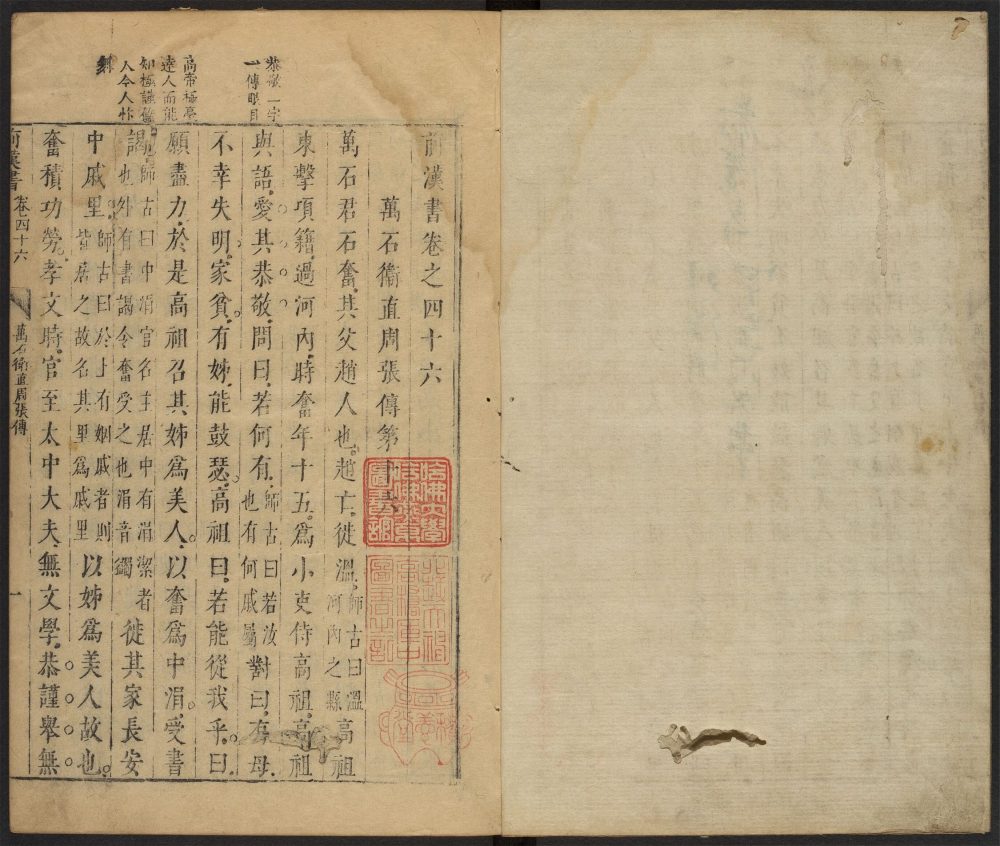 恭敬一字
一傳眼目
高帝極豪
達人而能
知極謹
人令人
前漢書卷之四十六
萬石衞直周張傳第十六
萬石君石奮，其父趙人也。趙亡，徙溫。師古曰溫河內之縣高祖
東擊項籍，過河內，時奮年十五，爲小吏侍高祖，高祖
與語，愛其恭敬，問曰，若何有，師古曰若汝也有何戚屬對曰，有母，
不幸失明，家貧，有姊，能鼓瑟，高祖曰，若能從我乎。曰，
願盡力，於是高祖召其姊爲美人，以奮爲中涓，受書
謁師古曰中涓官名主居中有涓潔者也外有書謁令奮受之也涓音蠲徙其家長安
中戚里師古曰於上有姻戚者則皆居之故名其里爲戚里以姊爲美人故也。
奮積功勞，孝文時，官至太中大夫，無文學，恭謹舉無
前漢書 卷四十六 萬石衞直周張傳 一
哈佛大學哈佛燕京圖書館